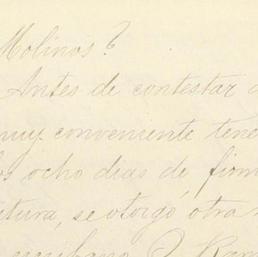 Molinos?
Antes de contestar
muy conveniente tene
os ocho dias de firm
itura, se otorgó otra
escribano D. Ram